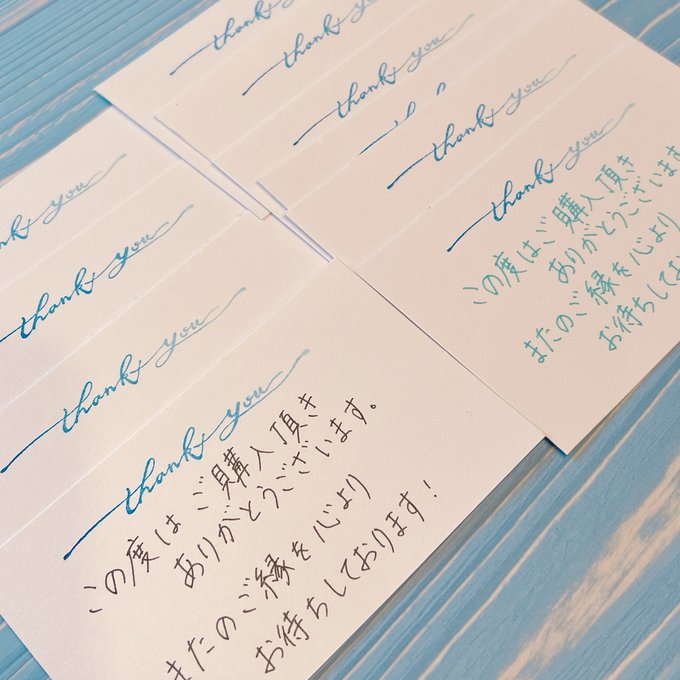 thank you
thank you
thank you
thank you
thank you
この度はご購入頂き
ありがとうございます
またのご縁を心より
お待ちしてお
thank you
thank you
thank you
thank you
この度はご購入頂き
ありがとうございます。
またのご縁を心より
お待ちしております!